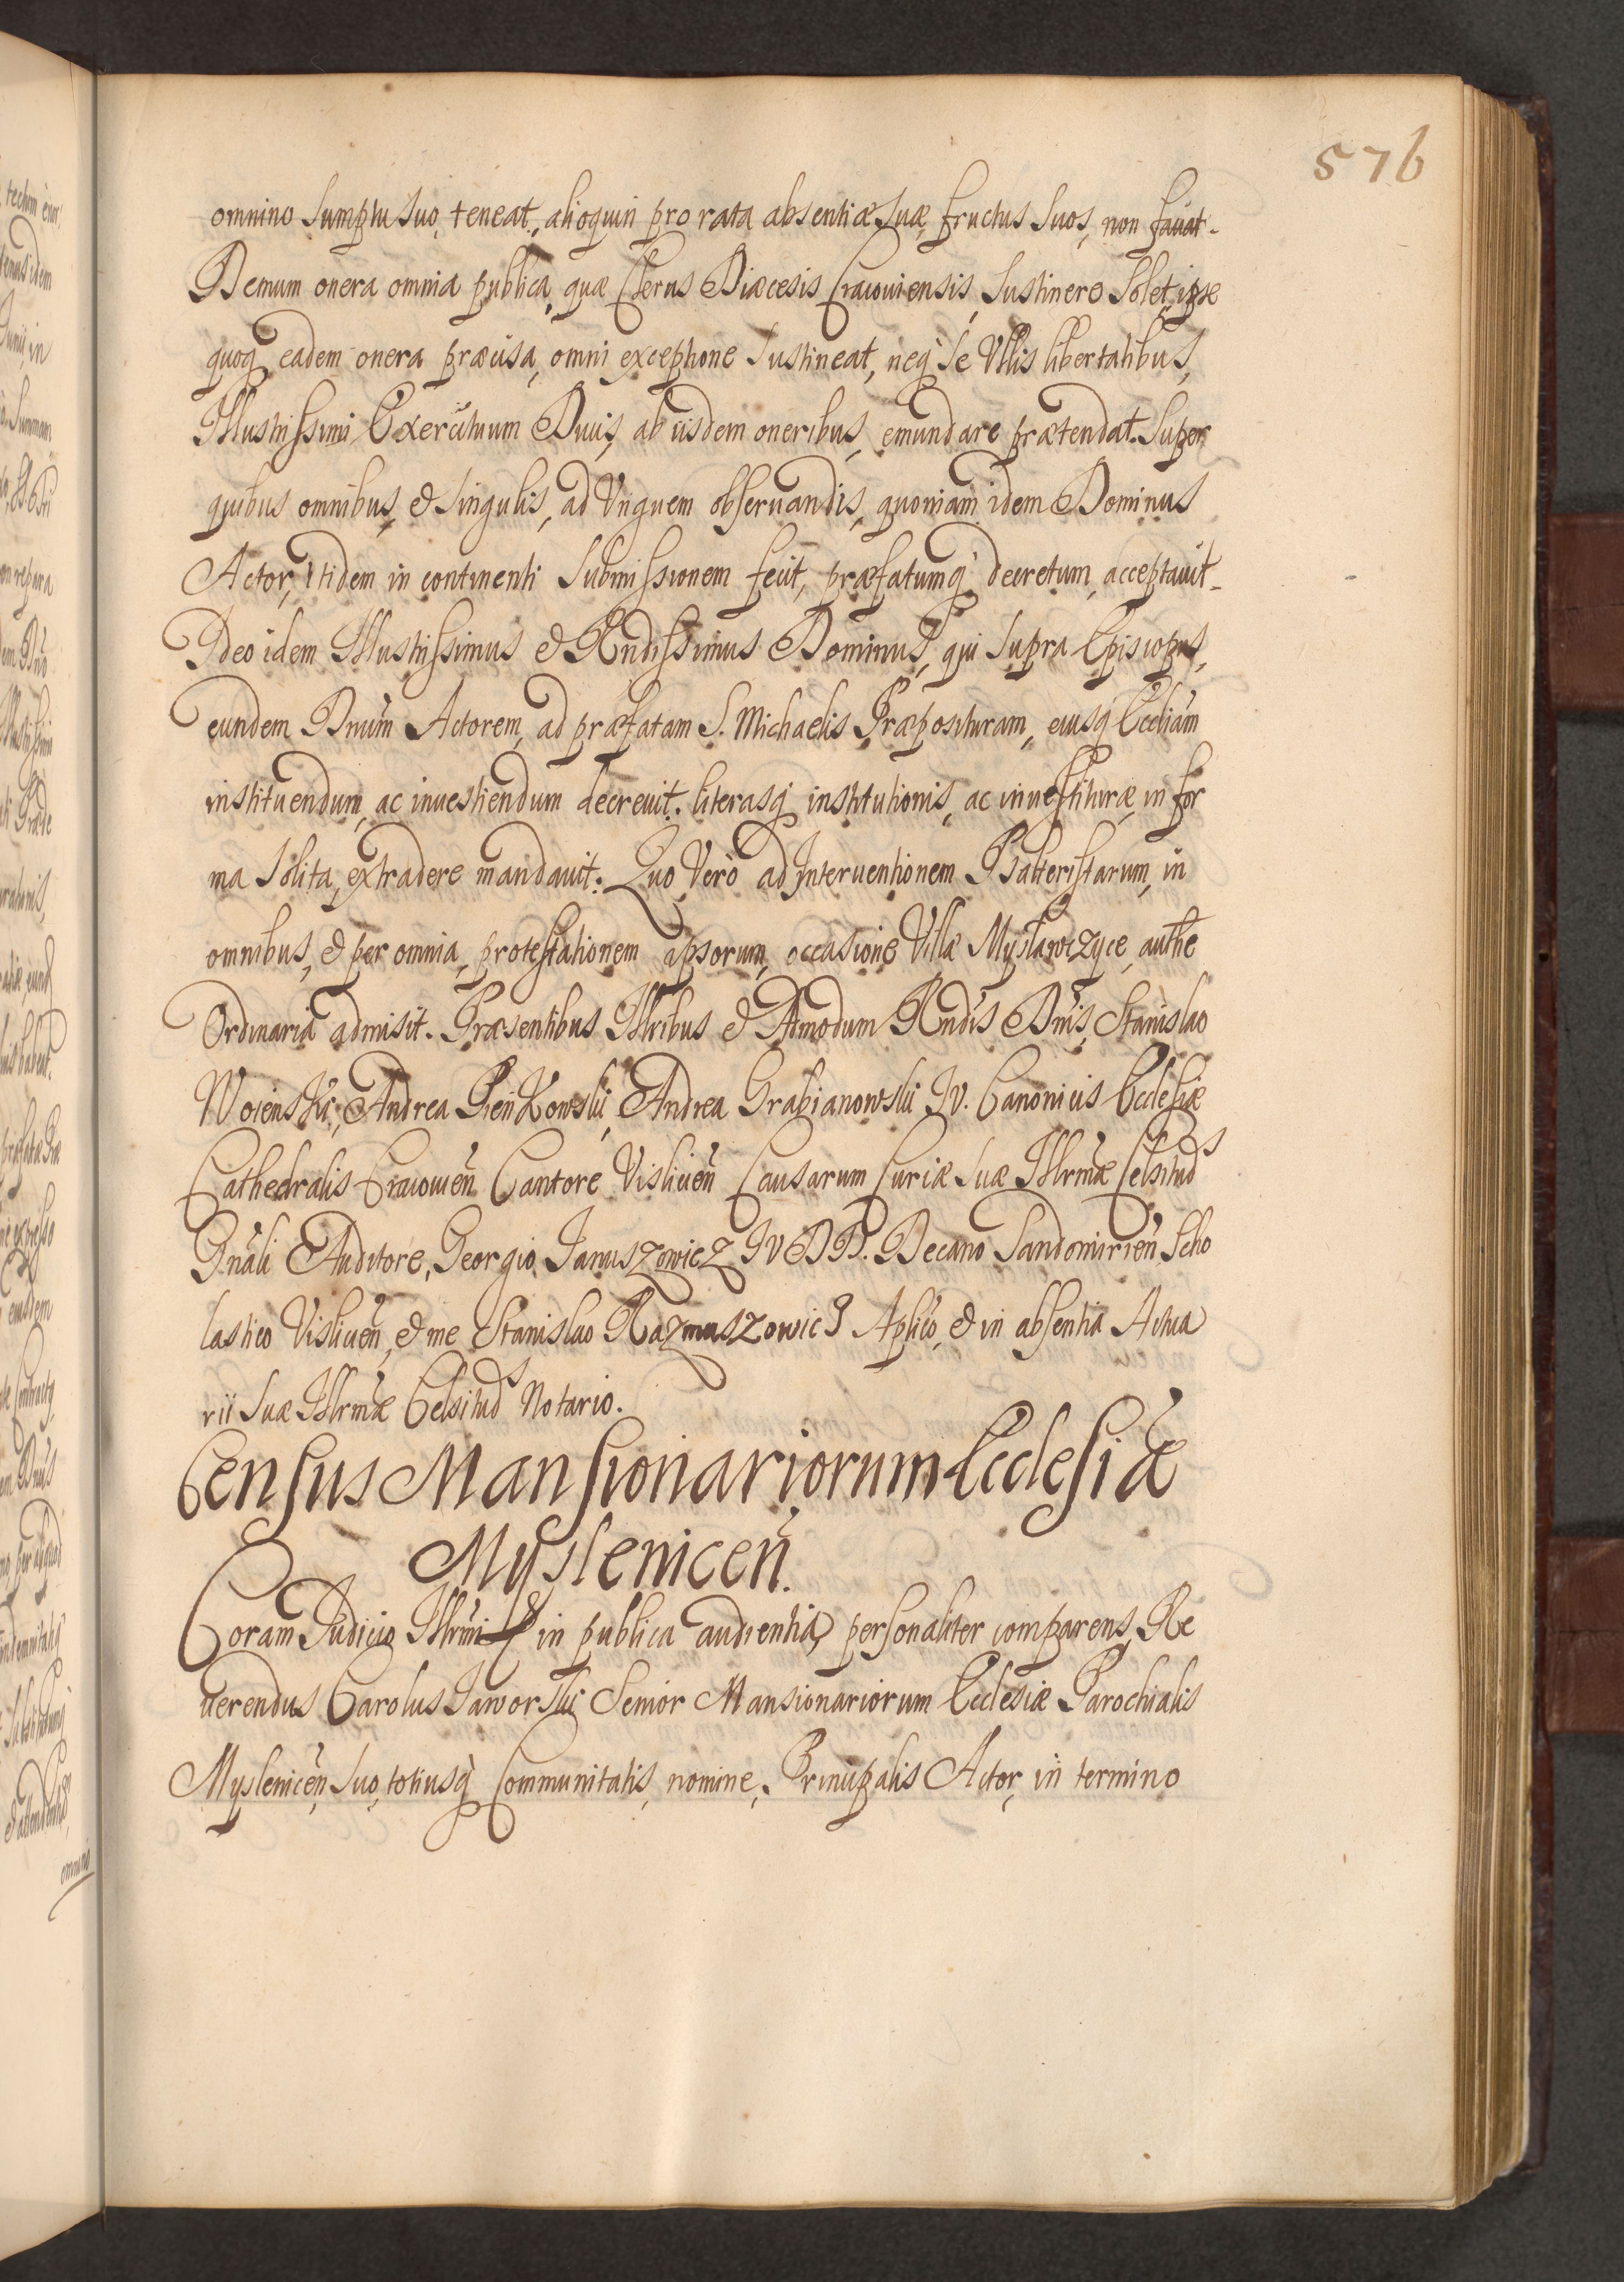 576
omnino sumptu suo, teneat, alioquin pro rata absentiæ suæ, fructus suos, non faciat.
Demum onera omnia publica, quæ Clerus Diæcesis Cracoviensis, sustinere solet, ipse
quoq, eadem onera præcisa, omni exceptione sustineat, neq se Ullis libertatibus,
Illustrissimi Exercituum Ducis, ab iisdem oneribus, emundare prætendat. Super
quibus omnibus, et singulis, ad Unguem observandis, quoniam idem Dominus
Actor, itidem in continenti submissionem fecit, præfatumq decretum, acceptavit.
Ideo idem Illustrissimus et Rndissimus Dominus, qui supra Episcopus,
eundem Dnum Actorem, ad præfatam S. Michaelis Præposituram, eiusq Eccliam
instituendum, ac investiendum decrevit. literasq institutionis, ac investituræ, in for
ma solita, extradere mandavit. Quo, Vero ad Interventionem Psalteristarum, in
omnibus, et per omnia, protestationem ipsorum, occasione Villæ Mysławczyce, authe
Ordinaria admisit. Præsentibus Illribus et Admodum Rndis Dnis, Stanislao
Woienski, Andrea Pieńkowski, Andrea Grabianowski I.V. Canonicis Ecclesiæ
Cathedralis Cracovien Cantore Vislicien Causarum Curiæ Suæ Illrmæ Celsitud
Gnali Auditore, Georgio Januszowicz IVDD. Decano Sandomirien, Scho
lastico Vislicien, et me Stanislao Razmuszowicz Aplico, et in absentia Actua
rii Suæ Illrmæ Celsitud Notario.
Census Mansionariorum Ecclesiæ
Myslenicen.
Coram Judicio Illrmi in publica audientia, personaliter comparens, Re
verendus Carolus Jaworski Senior Mansionariorum Ecclesiæ Parochialis
Myslenicen, suo, totiusq Communitatis, nomine, Principalis Actor, in termino